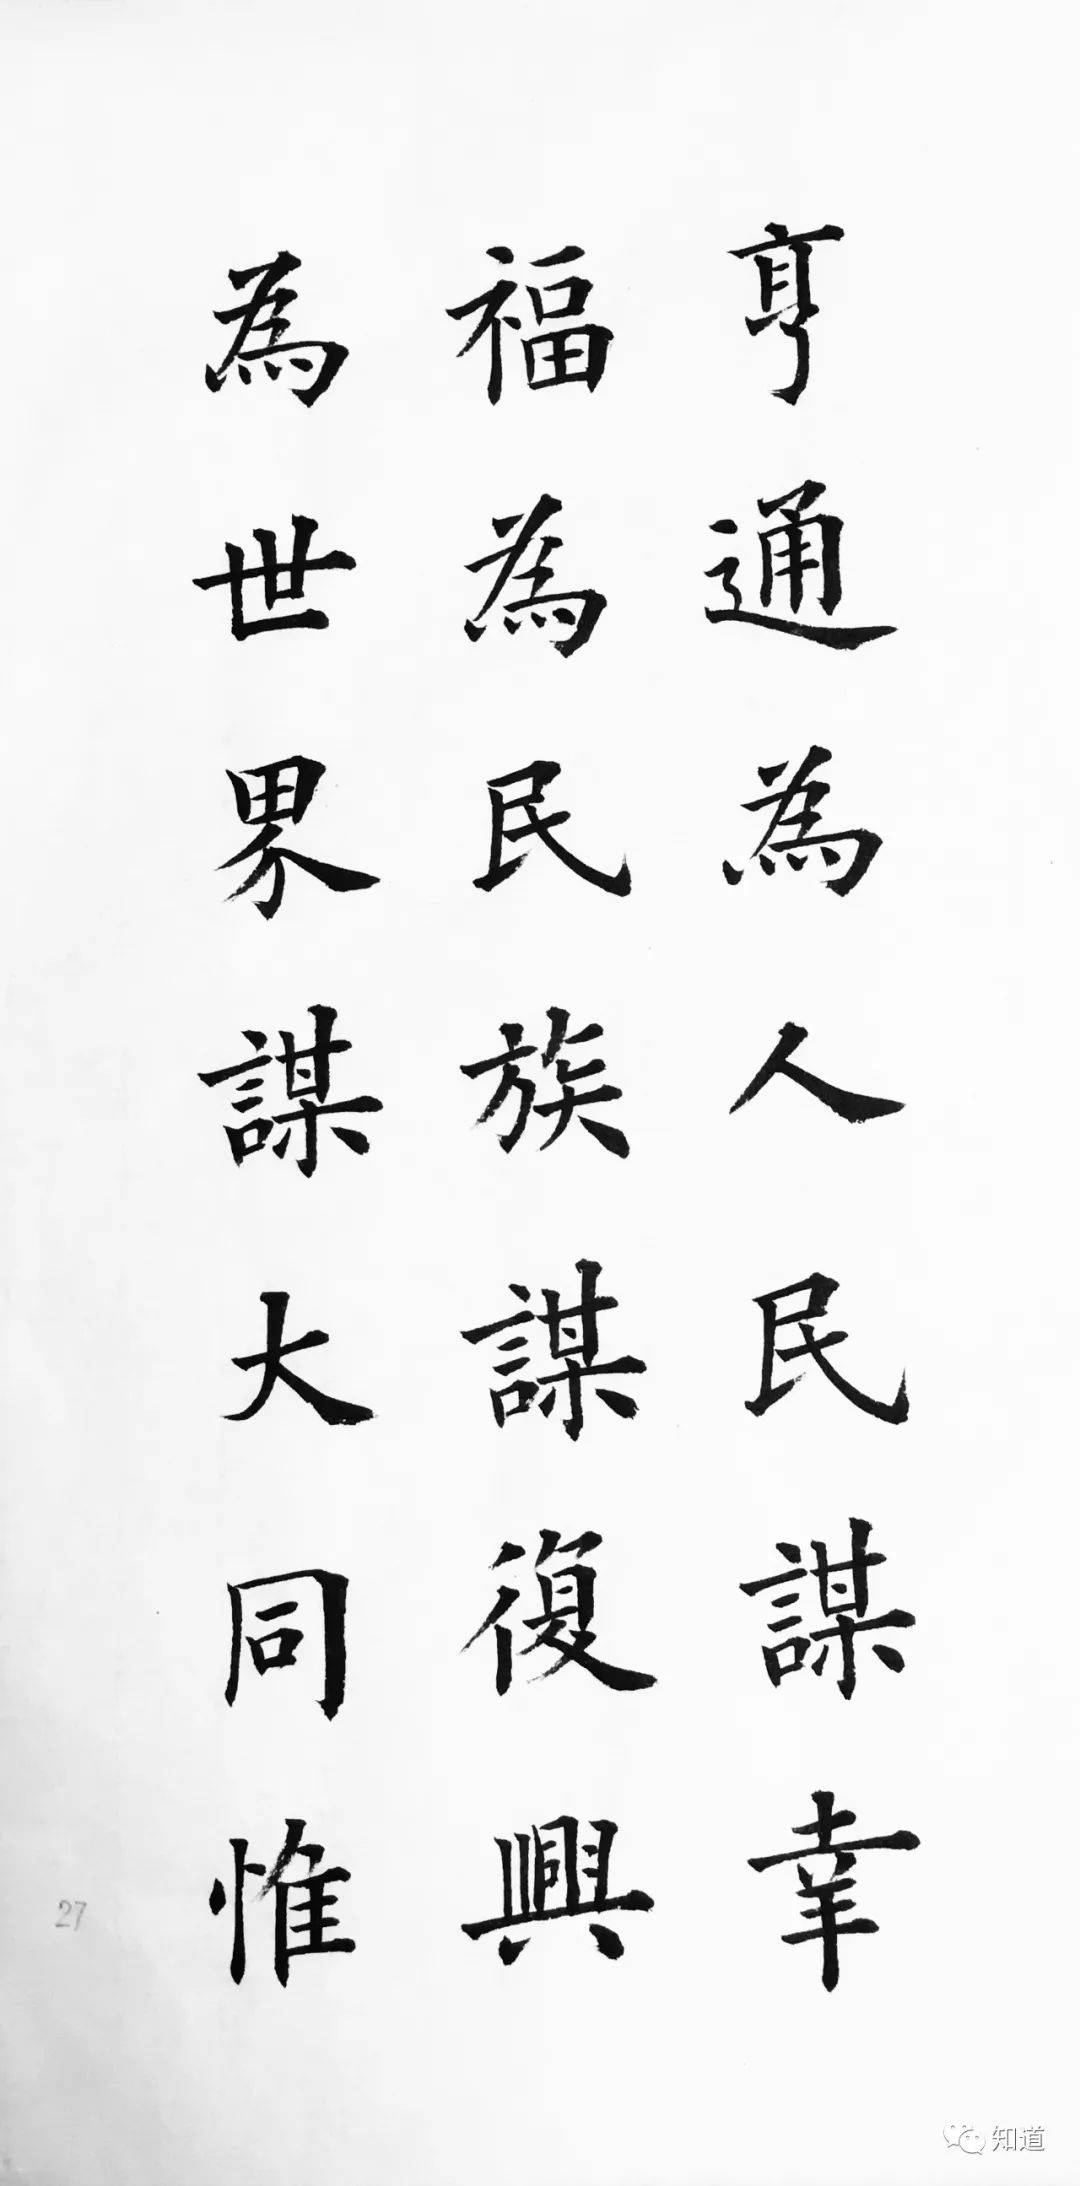 亨通為人民謀幸
福為民族謀復興
為世界謀大同惟
27
知道